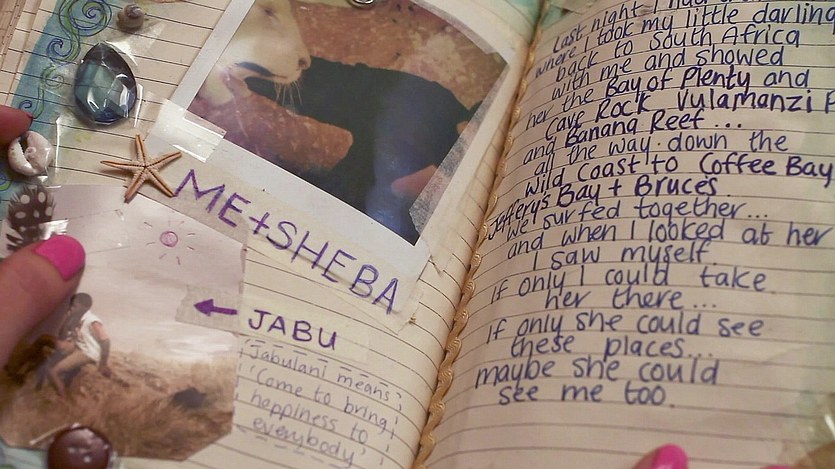 ME+SHEBA
JABU
Jabulani means
'Came to bring
happiness to
everybody'
Last night I had
where I took my little darling
back to South Africa
with me and showed
her the Bay of Plenty and
Cave Rock Vulamanzi
and Banana Reef ...
all the way down the
Wild Coast to Coffee Bay
Jeffery's Bay + Bruces
We surfed together...
and when I looked at her
I saw myself.
If only I could take
her there...
if only she could see
these places...
maybe she could
see me too.